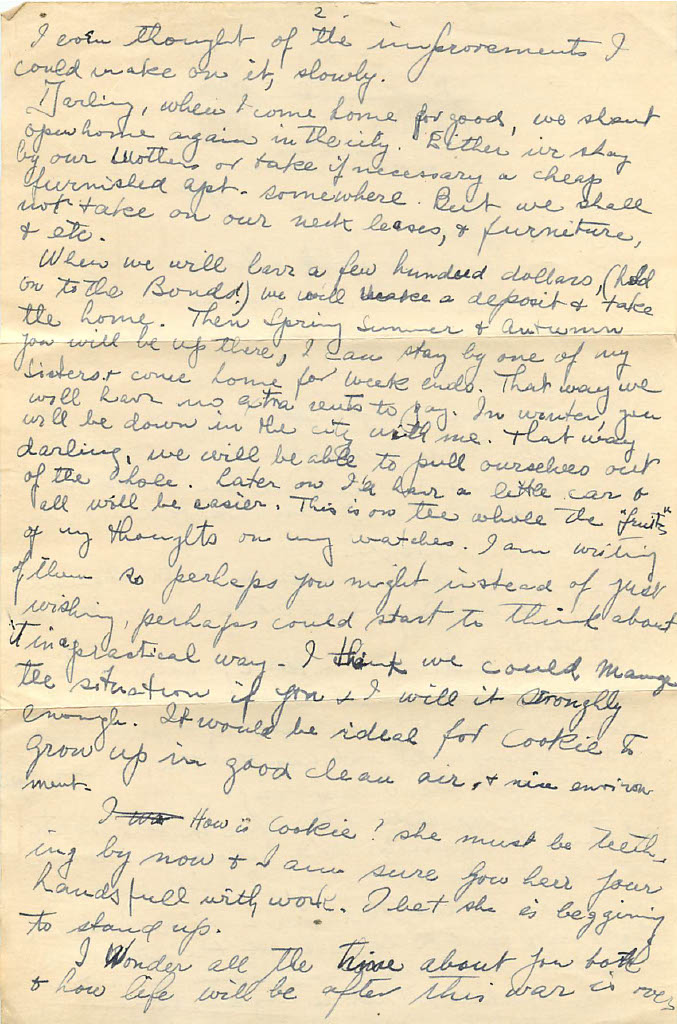 2
I even thought of the improvements I
could make on it, slowly.
Darling, when I come home for good, we shant
open home again in the city. Either we stay
by our Mothers or take if necessary a cheap
furnished apt. somewhere. But we shall
not take on our neck leases, & furniture,
& etc.
When we will have a few hundred dollars, (hold
on to the Bonds!) we will make a deposit & take
the home. Then Spring Summer & Autumn
you will be up there, I can stay by one of my
sisters & come home for week ends. That way we
will have no extra rents to pay. In winter, you
will be down in the city with me. That way
darling, we will be able to pull ourselves out
of the hole. Later on I'd have a little car &
all will be easier. This is on the whole the "fruits"
of my thoughts on my watches. I am writing
of them so perhaps you might instead of just
wishing, perhaps could start to think about
it in a practical way - I think we could manage
the situation if you & I will it stronglly
enough. It would be ideal for Cookie to
grow up in good clean air, & nice environ
ment.
I How is Cookie? she must be teeth-
ing by now & I am sure your
hands full with work. I bet she is beggining
to stand up.
I Wonder all the time about you both
& how life will be after this war is over